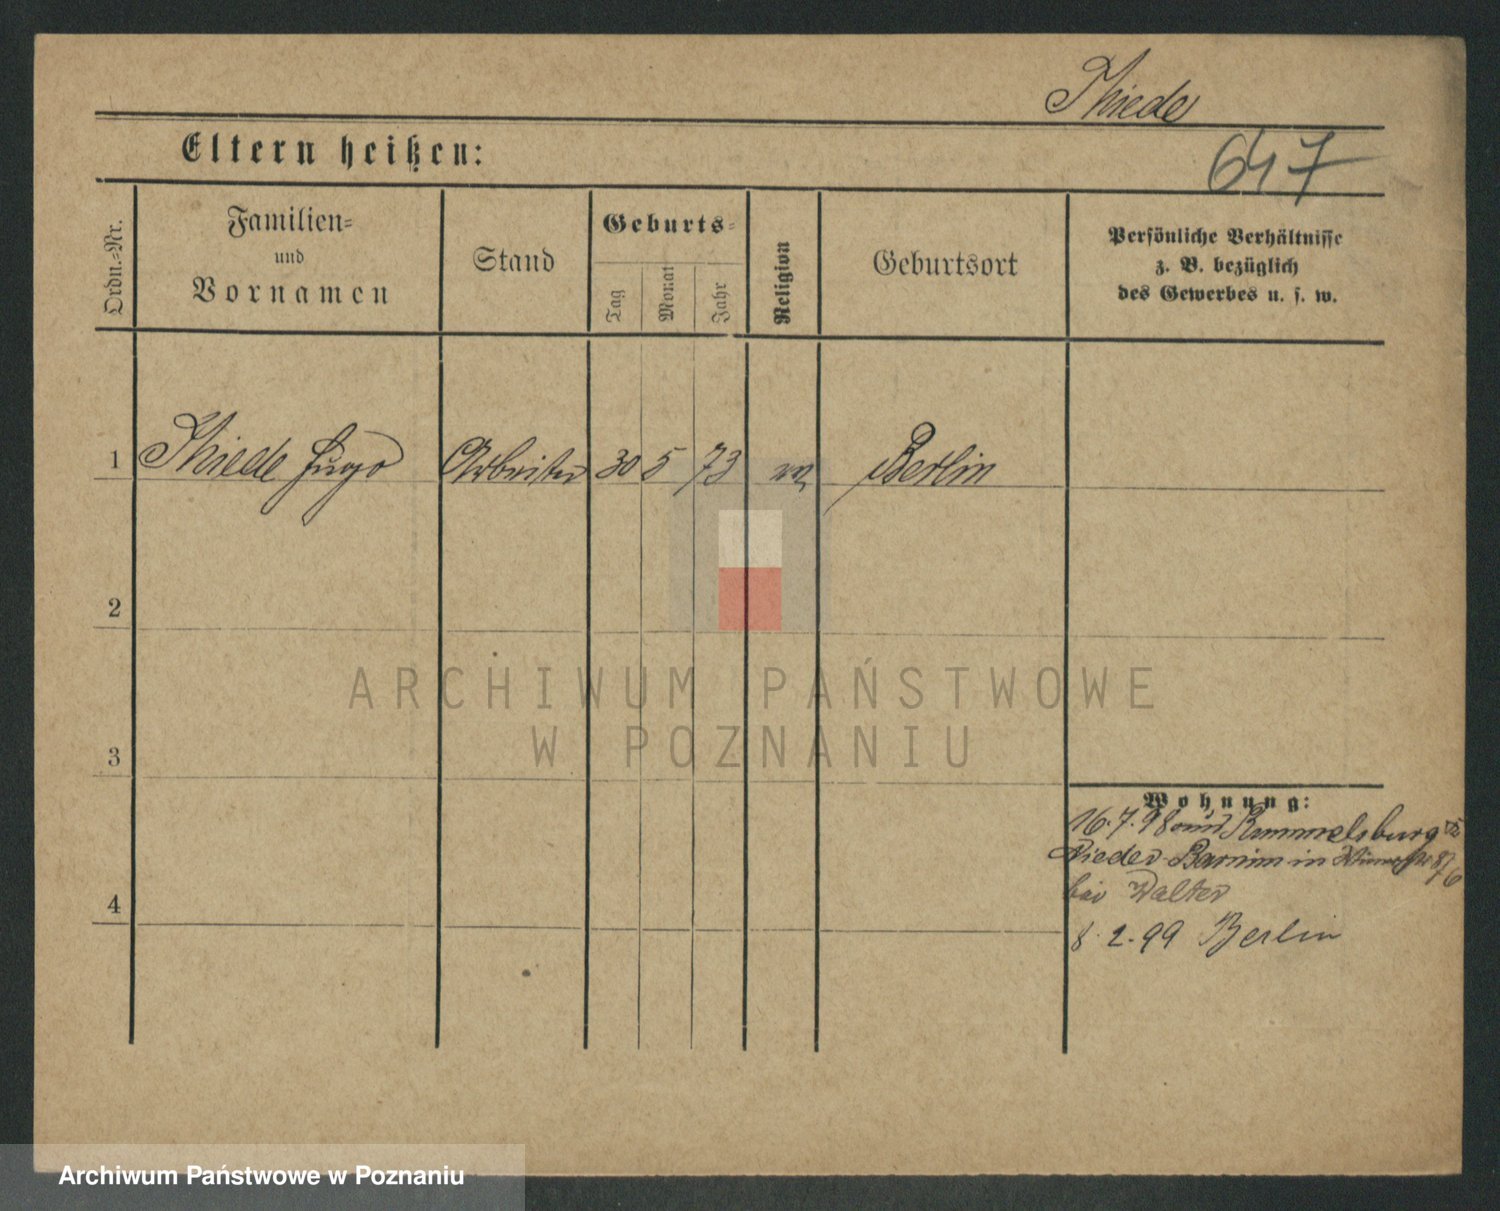 Thiede
Eltern heißen:
647
Ordn.-Nr.
Familien-
und
Vornamen
Stand
Geburts-
Tag
Monat
Jahr
Religion
Geburtsort
Persönliche Verhältnisse
z. B. bezüglich
des Gewerbes u. s. w.
1 Thiede Hugo Arbeiter 30 5 73 ev. Berlin
2
3
4
Wohnung:
16.7.98 aus Rummelsburg
Nieder-Barnim in
bei Walter
8.2.99 Berlin
ARCHIWUM PAŃSTWOWE
W POZNANIU
Archiwum Państwowe w Poznaniu